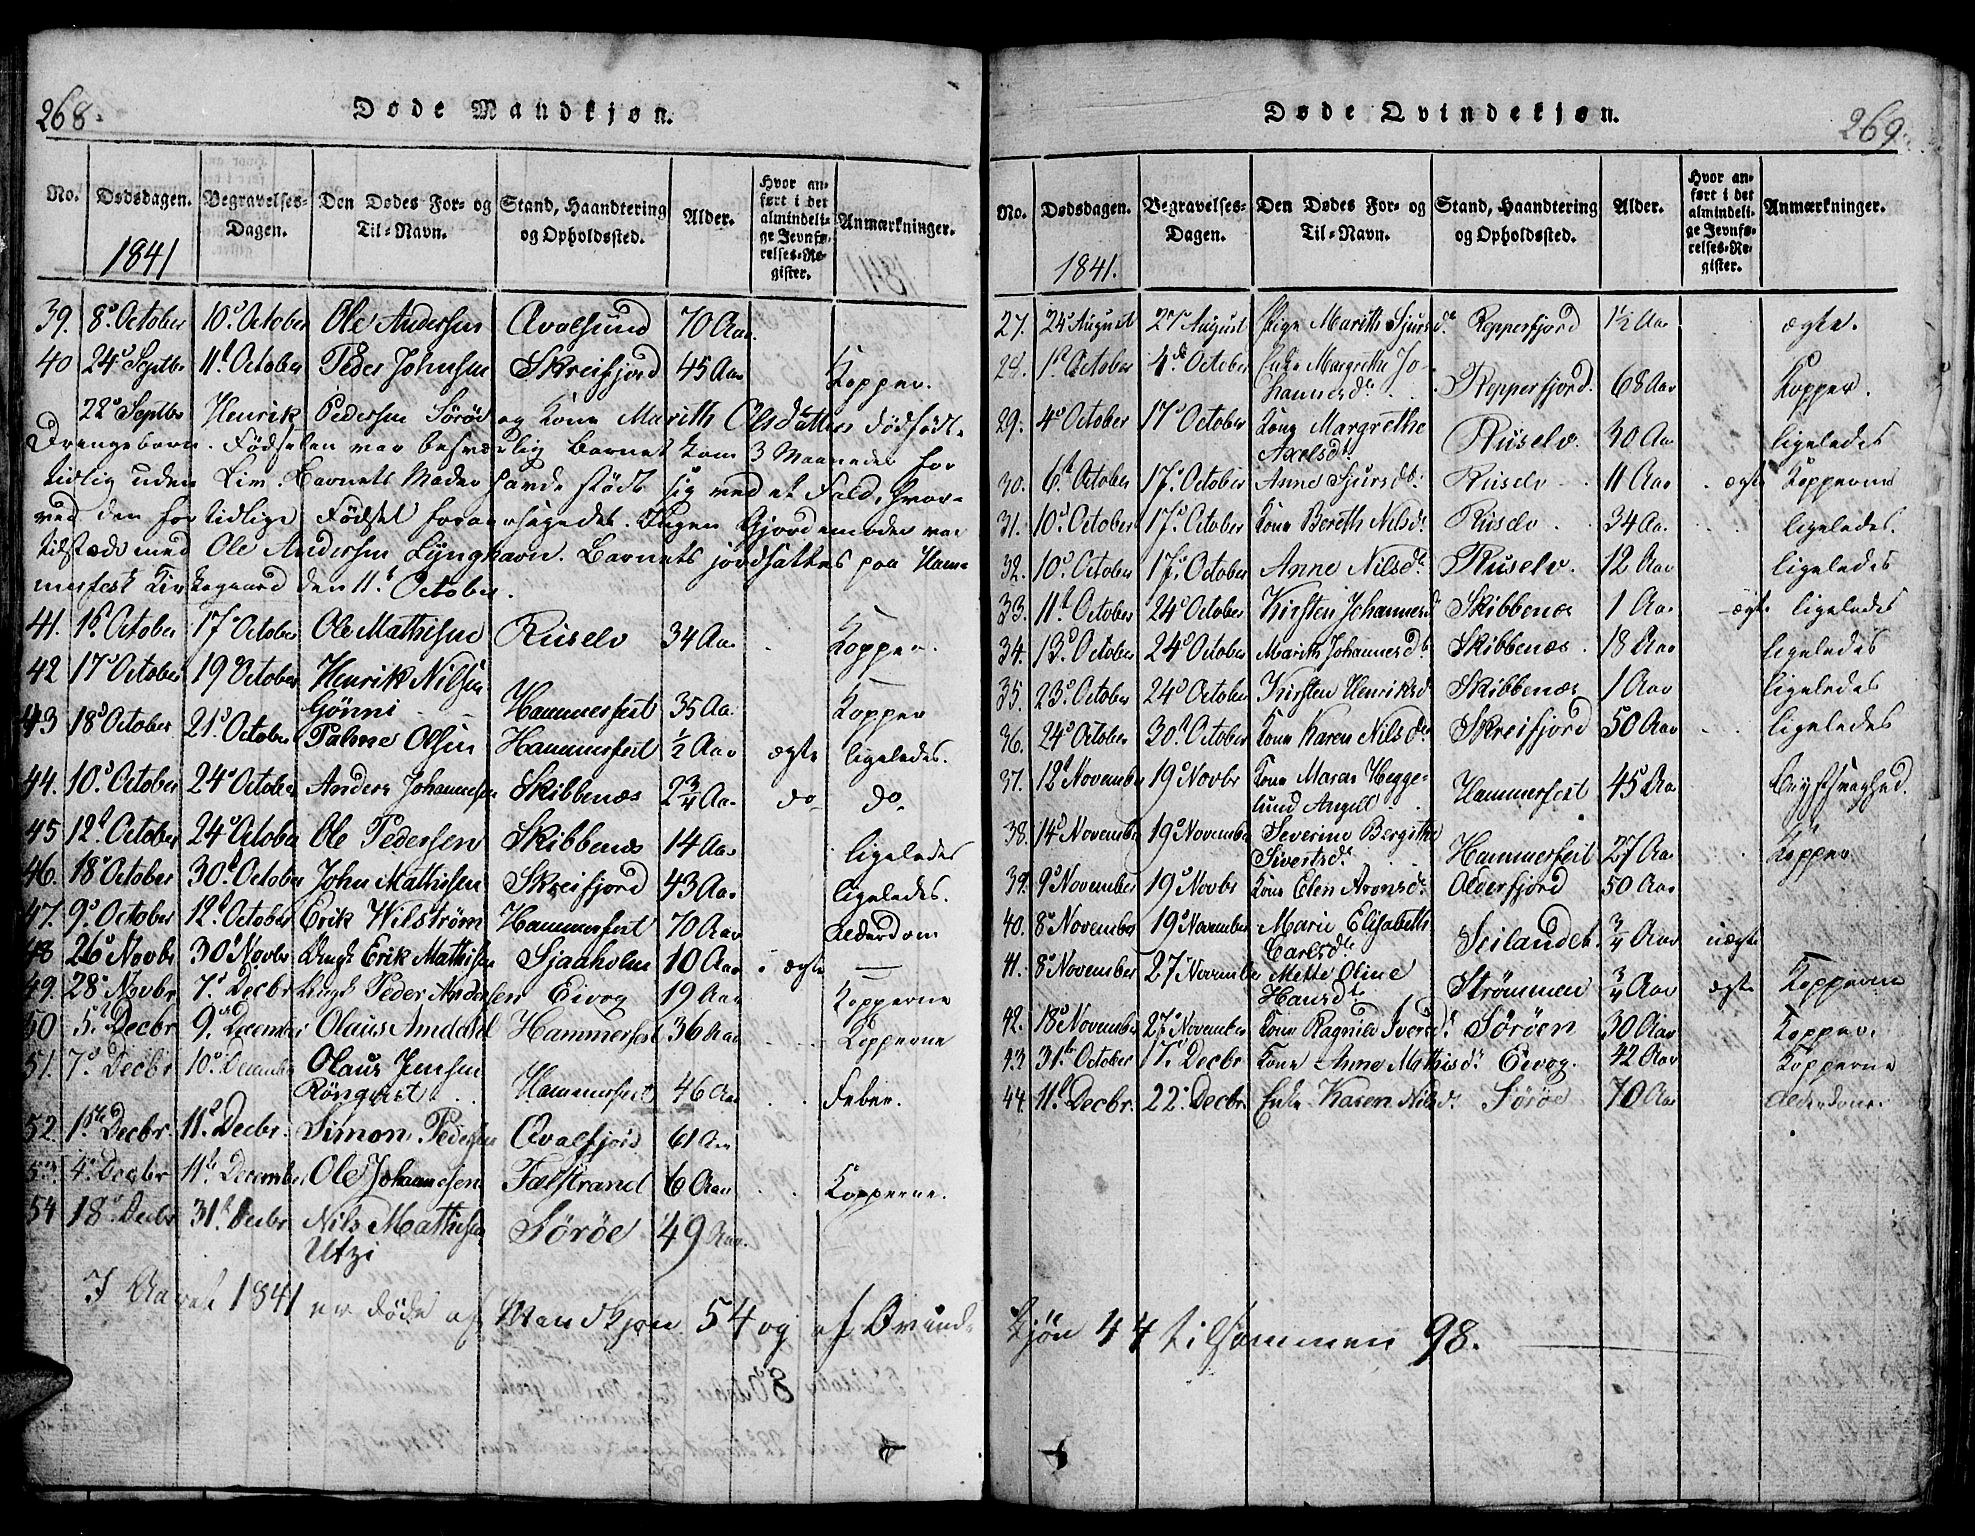 268.
Døde Mandkjøn.
No. Dødsdagen. Begravelses-Dagen. Den Dødes For- og Til-Navn. Stand, Haandtering og Opholdssted. Alder. Hvor anført i det almindelige Jevnførelses-Register. Anmærkninger.
1841
39. 8d October 10d October Ole Andersen Qvalsund 70 Aar.
40 24d Septbr 11t October Peder Johnsen Skreifjord 45 Aar Kopper.
22d Septbr Henrik Pedersen Sörö og Kone Marith Olsdatters dödfödte
Drengebarn. Födselen var besværlig Barnet kom 3 Maaneder for
tidlig uden Liv. Barnets Moder havde stödt sig ved et Fald, hvor-
ved den fortidlige Födsel foraarsagedes. Ingen Gjordemoder var
tilstede med Ole Andersen Lÿnghavn. Barnets jordsattes paa Ham-
merfest Kirkegaard den 11t October.
41. 16 October 17d October Ole Mathisen Rüselv 34 Aar Kopper.
42 17d October 19 October Henrik Nilsen
Gönni Hammerfest 35 Aar Kopper
43 18d October 21d October Palme Olsen Hammerfest 1/2 Aar ægte ligeledes.
44. 10d October 24d October Anders Johannesen Skibbenæs 2 3/4 Aar do do
45 12t October 24d October Ole Pedersen Skibbenæs 14 Aar ligeledes
46. 18d October 30t October John Mathisen Skreifjord 43 Aar ligeledes.
47. 9d October 12t October Erik Wilström Hammerfest 70 Aar Alderdom
48 26d Novbr 30d Novbr Ungk Erik Mathisen Sjaaholm 10 Aar ægte —
49. 28d Novbr 7d Decbr Ungk Peder Andersen Eivog 19 Aar Kopperne
50 5t Decbr 9d December Olaus Amdal Hammerfest 36 Aar Kopperne
51. 7d Decbr 10d December Olaus Jensen
Rönqvist Hammerfest 46 Aar Feber.
52 1ste Decbr. 11t Decbr. Simon Pedersen Qvalfjord 61 Aar
53. 4d Decbr 11te December Ole Johannesen Falstrand 6 Aar Kopperne.
54 18d Decbr 31t Decbr. Nils Mathisen
Utzi Söröe 49 Aar.
I Aaret 1841 er döde af Mandkjön 54 og af Qvind-
269.
Døde Qvindekjøn.
No. Dødsdagen. Begravelses-Dagen. Den Dødes For- og Til-Navn. Stand, Haandtering og Opholdssted. Alder. Hvor anført i det almindelige Jevnførelses-Register. Anmærkninger.
1841.
27. 24d August 27d August Pige Marith Sjursdr Repperfjord 1 1/2 Aar ægte.
28. 1st October 4de October Enke Margrethe Jo-
hannesdr Repperfjord. 68 Aar Kopper.
29. 4d October 17d October Kone Margrethe
Axelsdr Rüselv. 30 Aar ligeledes
30. 6t October 17d October Anne Sjursdr Rüselv 11 Aar ægte Kopperne
31. 10d October 17d October Kone Bereth Nilsdr Rüselv 34 Aar ligeledes.
32. 10d October 17d October Anne Nilsdr Rüselv. 12 Aar ligeledes
33. 11t October 24d October Kirsten Johannesdr Skibbenæs 1 Aar ægte ligeledes
34. 13d October 24d October Marith Johannesdr Skibbenæs 18 Aar ligeledes
35. 23d October 24d October Kirsten Henriksdr Skibbenæs 1 Aar ligeledes
36. 24d October 30t October Kone Karen Nilsdr Skreifjord 50 Aar ligeledes
37. 12t November 19d Novbr Kone Maren Hegge-
lund Angell Hammerfest 45 Aar Brystsvaghed.
38. 14d November 19d November Severine Bergithe
Sivertsdr Hammerfest 27 Aar Kopper
39. 9d November 19d Novbr Kone Elen Aronsdr Alderfjord 50 Aar
40. 8d November 19d November Marie Elisabeth
Carlsdr Seilandet 3/4 Aar uægte
41. 8d November 27d November Mette Oline
Hansdr Strömmen 3/4 Aar ægte Kopperne
42. 18d November 27d November Kone Ragnild Iversdr Söröen 30 Aar Kopper.
43 31te October 17d Decbr Kone Anne Mathisdr Eivog. 42 Aar Kopperne
44. 11t Decbr. 22d Decbr. Enke Karen Nilsdr Söröe 70 Aar Alderdom.
kjön 44 tilsammen 98.